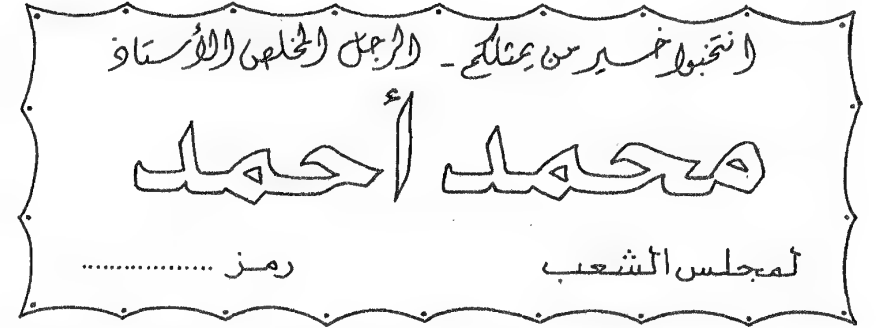 انتخبوا خير من يمثلكم - الرجل المخلص الأستاذ
محمد أحمد
لمجلس الشعب رمز ................